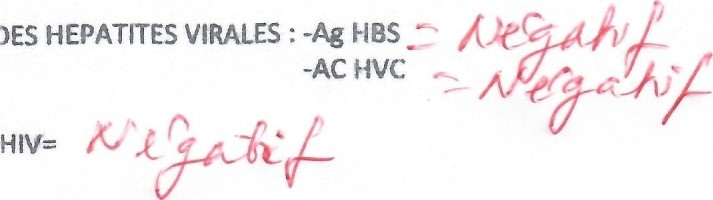 DES HEPATITES VIRALES : -Ag HBS = Négatif
-AC HVC = Négatif
HIV= Négatif